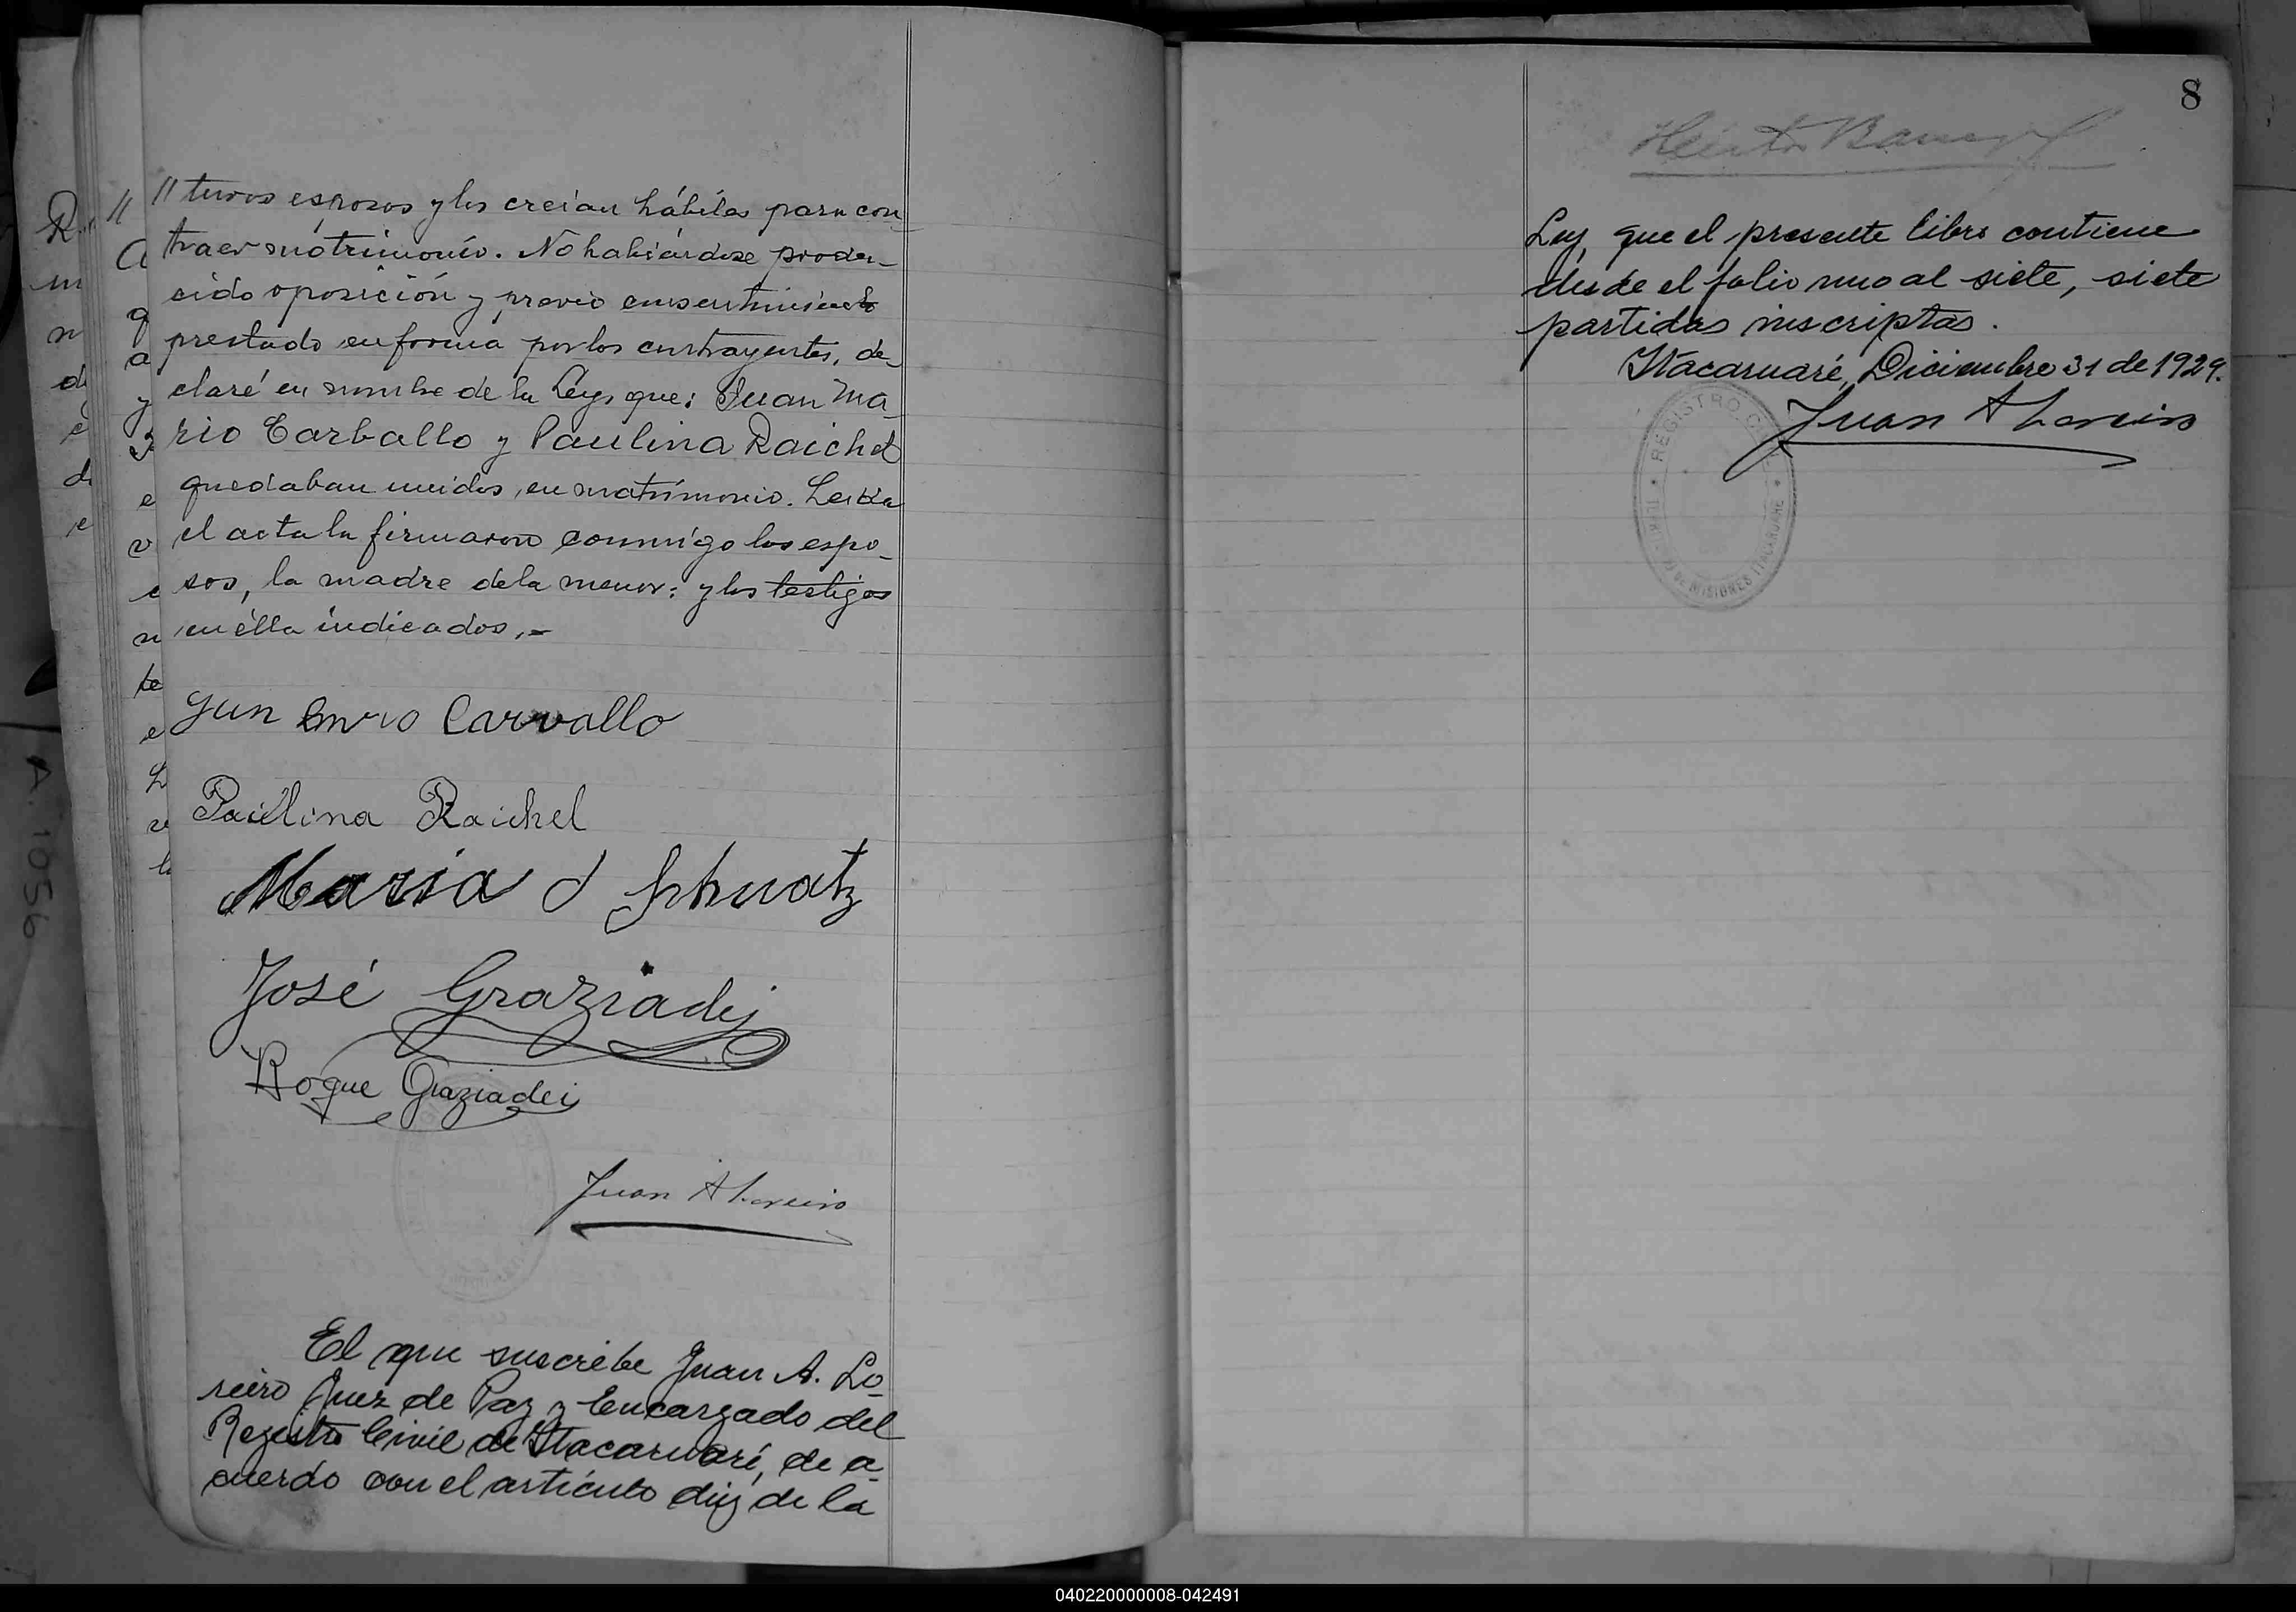 // turos esposos y los creían hábiles para con_
traer matrimonio. No habiéndose produ_
cido oposición y previo consentimiento
prestado en forma por los contrayentes, de_
claré en nombre de la Ley, que: Juan Ma_
rio Carballo y Paulina Raichel
quedaban unidos en matrimonio. Leida
el acta la firmaron conmigo los espo_
sos, la madre de la menor: y los testigos
en élla indicados,=
Carvallo
Paulina Raichel
Maria
José Graziadei
Roque Graziadei
Juan A Loreiro
El que suscribe Juan A. Lo_
reiro Juez de Paz y Encargado del
Registro Civil de Itacaruaré, de a_
cuerdo con el artículo diez de la
8
Ley, que el presente libro contiene
desde el folio uno al siete, siete
partidas inscriptas.
Itacaruaré, Diciembre 31 de 1929.
Juan A Loreiro
REGISTRO C
DE MISIONES ITACARUARE
A. 1056
040220000008-042491